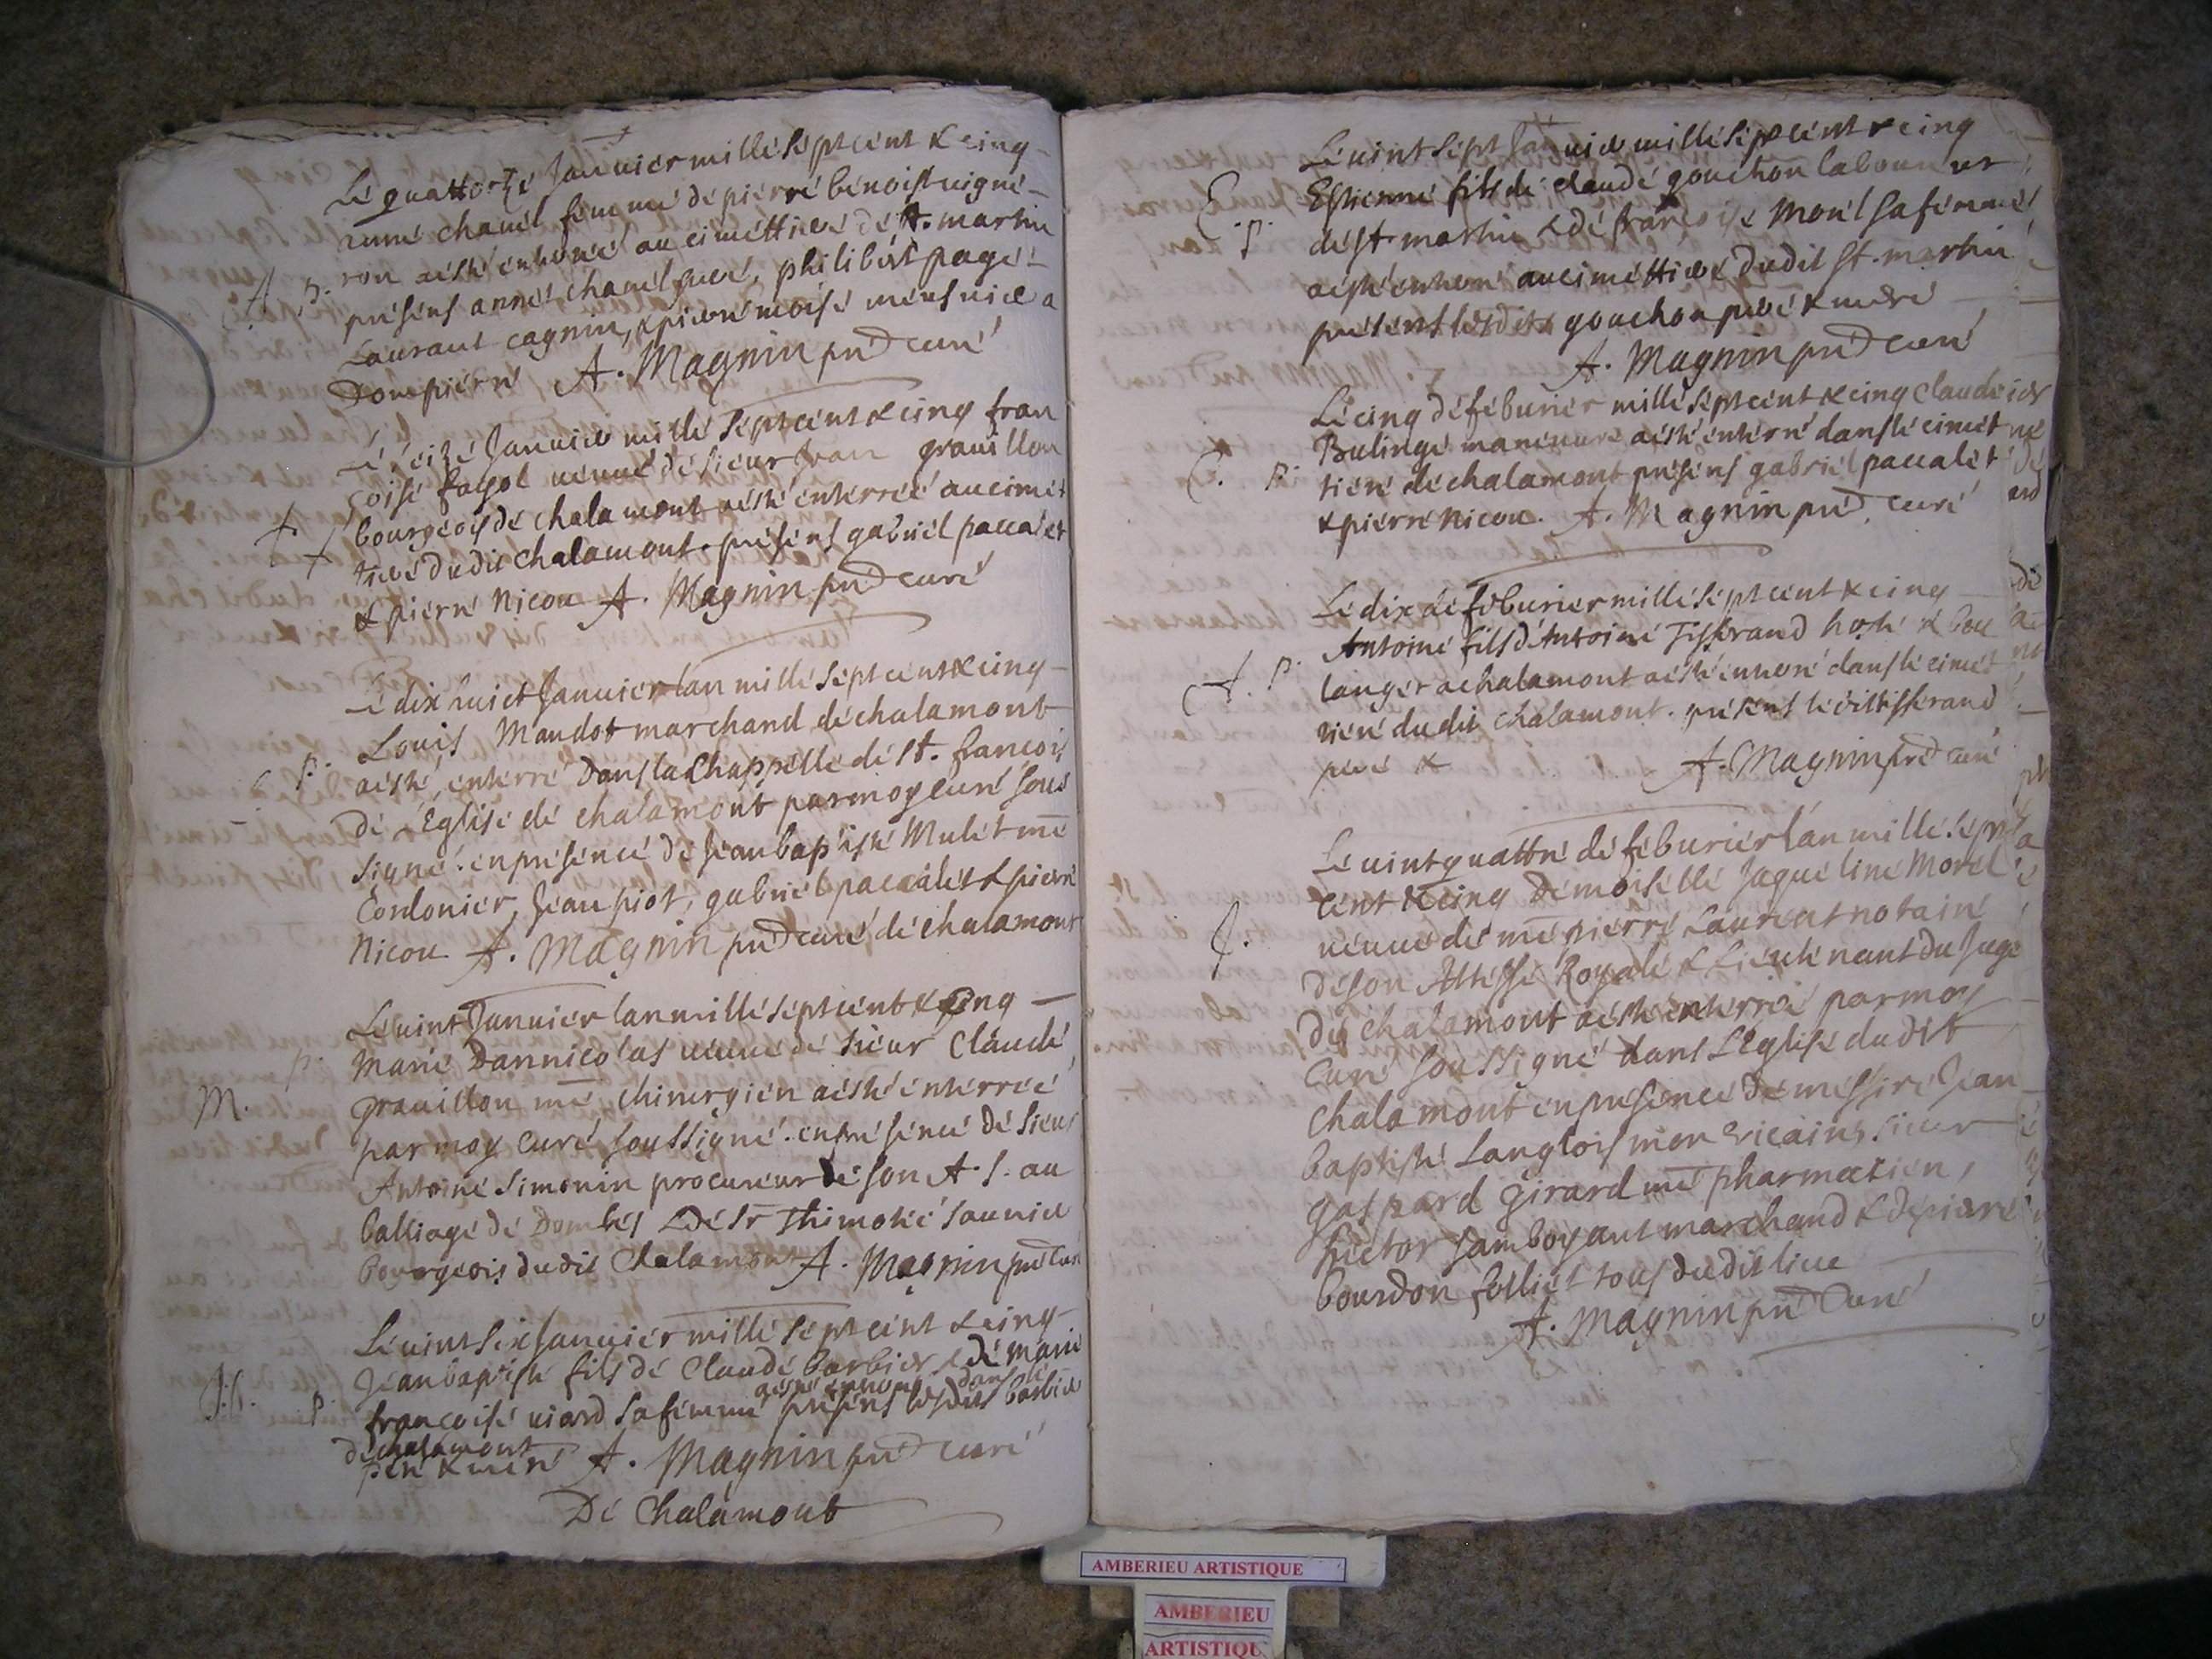 Le quattorze Januier mille sept cent & cinq
chauel femme de pierre benoist uigne-
A p. ron aesté enterré au cimettiere de st. martin
présens anne chauel sœur, philibert page
Lauraut cagnin, & pierre moise meusnier a
Dompierre A. Magnin prê curé
Le seize Januier mille sept cent & cinq fran
coise fayol ueuue de sieur Jean grauillon
bourgeois de chalamont aesté enterreé au cimet
tiere dudit chalamont. présens gabriel paccalet
& pierre Nicou A. Magnin prê curé
Le dix huict Januier lan mille sept cent & cinq
Louis Maudot marchand de chalamont
p. aesté enterré Dans la Chappelle de st. francois
de l'Eglise de chalamont par moy curé sous
signé. en présence de Jean baptiste Mulet me
Cordonier, Jean piot, gabriel paccalet & pierre
Nicou A. Magnin prê curé de chalamont
Le uint Januier lan mille sept cent & cinq
p. Marie Dannicolas ueuue de sieur Claude
M. grauillon me chirurgien aesté enterreé
par moy curé soussigné. en présence de sieur
Antoine Simonin procureur de son A. S. au
balliage de Dombes & de sr Thimoteé saunier
bourgeois dudit Chalamont A. Magnin prê curé
Le uint six Januier mille sept cent & cinq
Jean baptiste fils de Claude barbier & de marie
aesté enterré dans le
J.B. p. francoise uiard sa femme présens lesdits barbier
de chalamont
pere & mere A. Magnin prê curé
De Chalamont
Le uint sept Januier mille sept cent & cinq
E. p. Estienne fils de claude gouchon laboureur
de st. martin & de francoise Morel sa femme
aesté enterré au cimettiere dudit st. martin
présent lesdits gouchon pere & mere
A. Magnin prê curé
Le cinq de feburier mille sept cent & cinq claude
Bulinge maneuure aesté enterré dans le cimet
C. p. tiere de chalamont présens gabriel paccalet
& pierre Nicou. A. Magnin prê curé
Le dix de feburier mille sept cent & cinq
Antoine fils d'Antoine Tisserand hoste & bou
A. p. langer a chalamont aesté enterré dans le cimet
tiere dudit chalamont. présens ledit tisserand
pere & A. Magnin prê curé
Le uint quattre de feburier lan mille sept
cent & cinq Demoiselle Jaqueline Morel
J. ueuue de me pierre Laurent notaire
de son Altesse Royale & Lieutenant du Juge
de chalamont aesté enterreé par moy
Curé soussigné dans l'Eglise dudit
Chalamont en présence de messire Jean
baptiste Langlois mon uicaire, sieur
gaspard Girard me pharmatien,
hictor Jamboyant marchand & de pierre
bourdon folliet tous dudit lieu
A. Magnin prê Curé
AMBERIEU ARTISTIQUE
AMBERIEU
ARTISTIQU